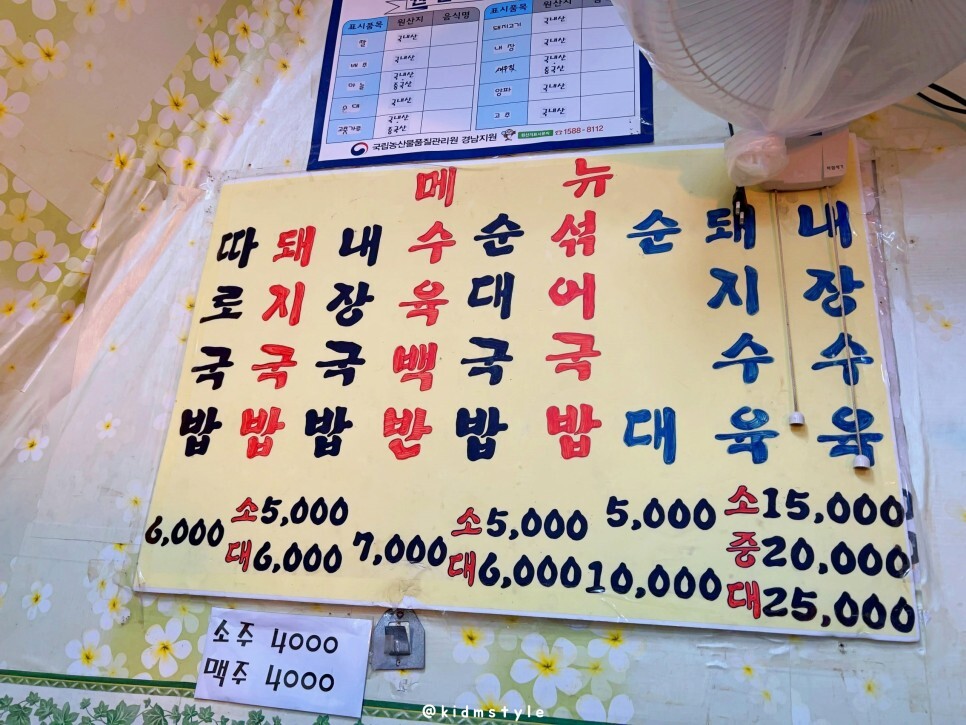 표시품목 원산지 음식명
쌀 국내산
배추 국내산
마늘 국내산 중국산
순대 국내산
고춧가루 국내산 중국산
표시품목 원산지
돼지고기 국내산
내장 국내산
새우젓 국내산 중국산
양파 국내산
고추 국내산
국립농산물품질관리원 경남지원 ☎1588-8112
메뉴
따로국밥
돼지국밥
내장국밥
수육백반
순대국밥
섞어국밥
순대
돼지수육
내장수육
6,000
소 5,000
대 6,000
7,000
소 5,000
대 6,000
5,000
10,000
소 15,000
중 20,000
대 25,000
소주 4000
맥주 4000
@kidmstyle